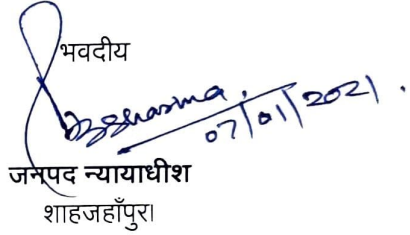 भवदीय
07/01/2021.
जनपद न्यायाधीश
शाहजहाँपुर।